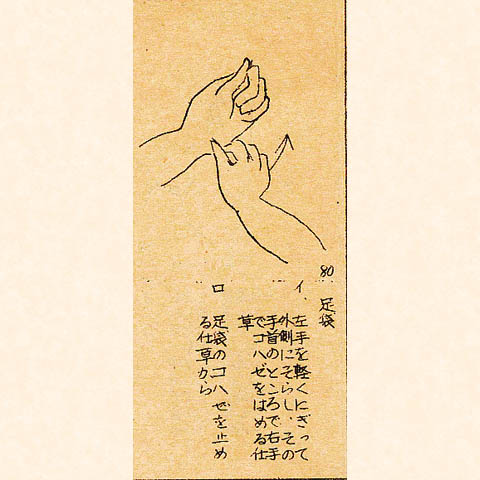 80
足袋
イ、左手を軽くにぎって
外側にそらし、その
手首のところで右手
でコハゼをはめる仕
草
ロ 足袋のコハゼを止め
る仕草から